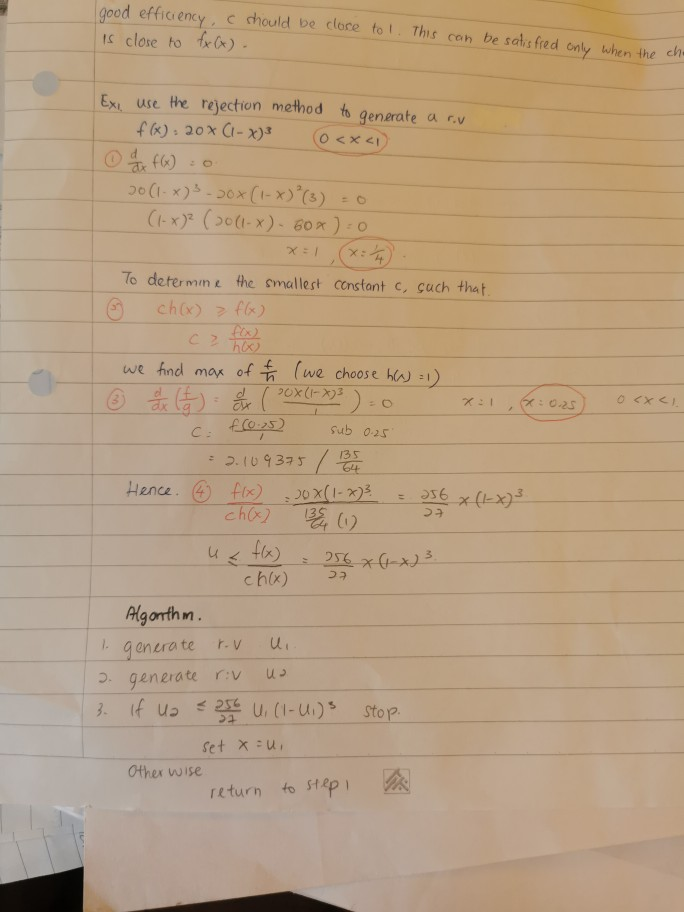 good efficiency, c should be close to 1. This can be satisfied only when the
is close to fx(x).
Ex1, use the rejection method to generate a r.v
f(x) = 20x(1-x)³ 0<x<1
① d/dx f(x) = 0
20(1-x)³ - 20x(1-x)²(3) = 0
(1-x)² (20(1-x) - 60x) = 0
x = 1, x = 1/4.
To determine the smallest constant c, such that.
② ch(x) ≥ f(x)
c ≥ f(x)/h(x)
we find max of f/h (we choose h(x) = 1)
③ d/dx (f/g) = d/dx (20x(1-x)³/1) = 0 x = 1, x = 0.25 0<x<1.
c = f(0.25)/1 sub 0.25
= 2.109375 / 135/64
Hence. ④ f(x)/ch(x) = 20x(1-x)³/(135/64 (1)) = 256/27 x(1-x)³
u ≤ f(x)/ch(x) = 256/27 x(1-x)³.
Algorithm.
1. generate r.v u1
2. generate r.v u2
3. If u2 ≤ 256/27 u1(1-u1)³ stop.
set x = u1
Otherwise
return to step 1